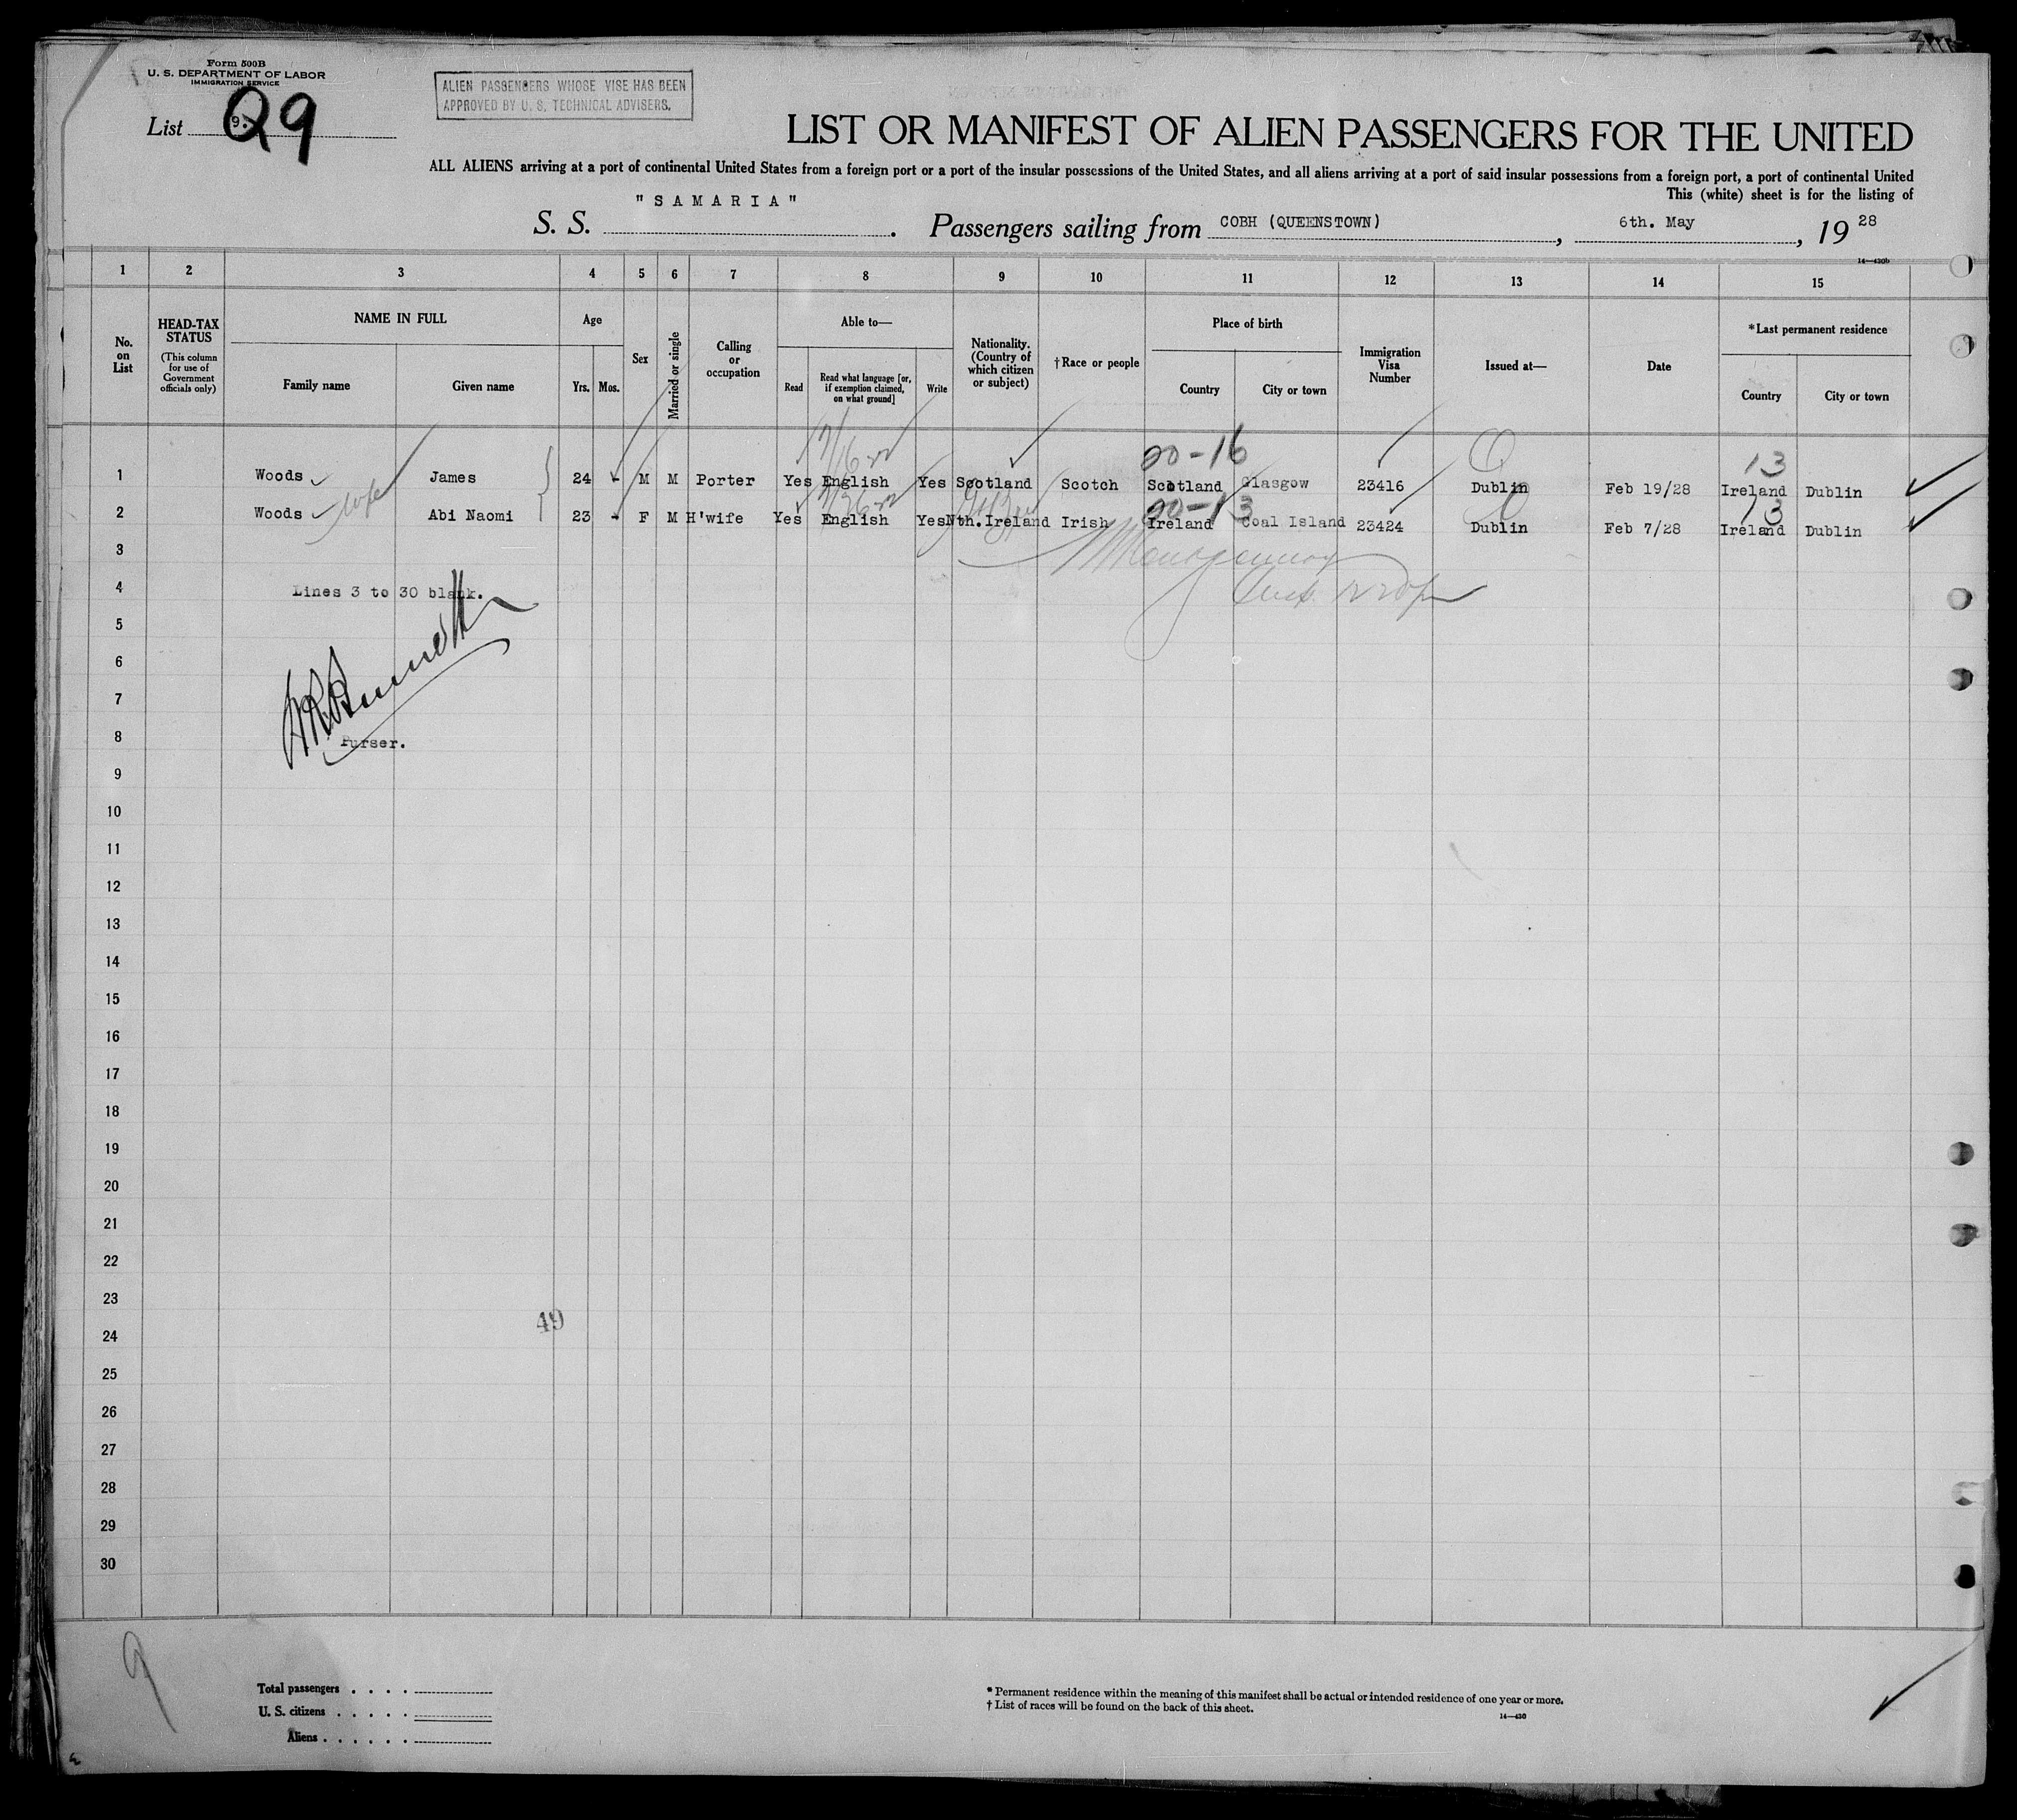 Form 500B
U. S. DEPARTMENT OF LABOR
IMMIGRATION SERVICE
ALIEN PASSENGERS WHOSE VISE HAS BEEN
APPROVED BY U. S. TECHNICAL ADVISERS.
List 9. 29
LIST OR MANIFEST OF ALIEN PASSENGERS FOR THE UNITED
ALL ALIENS arriving at a port of continental United States from a foreign port or a port of the insular possessions of the United States, and all aliens arriving at a port of said insular possessions from a foreign port, a port of continental United
This (white) sheet is for the listing of
S. S. "SAMARIA". Passengers sailing from COBH (QUEENSTOWN), 6th. May, 1928
14—430b
1 2 3 4 5 6 7 8 9 10 11 12 13 14 15
No. on List
HEAD-TAX STATUS
(This column for use of Government officials only)
NAME IN FULL
Family name
Given name
Age
Yrs.
Mos.
Sex
Married or single
Calling or occupation
Able to—
Read
Read what language [or, if exemption claimed, on what ground]
Write
Nationality. (Country of which citizen or subject)
†Race or people
Place of birth
Country
City or town
Immigration Visa Number
Issued at—
Date
*Last permanent residence
Country
City or town
20-16 13
1 Woods James 24 - M M Porter Yes English Yes Scotland Scotch Scotland Glasgow 23416 Dublin Feb 19/28 Ireland Dublin
wife 20-13 13
2 Woods Abi Naomi 23 - F M H'wife Yes English Yes Nth.Ireland Irish Ireland Coal Island 23424 Dublin Feb 7/28 Ireland Dublin
3
4 Lines 3 to 30 blank.
5
6
7
8 Purser.
9
10
11
12
13
14
15
16
17
18
19
20
21
22
23
49
24
25
26
27
28
29
30
9
Total passengers . . . .
U. S. citizens . . . . .
Aliens . . . . . .
* Permanent residence within the meaning of this manifest shall be actual or intended residence of one year or more.
† List of races will be found on the back of this sheet.
14—430